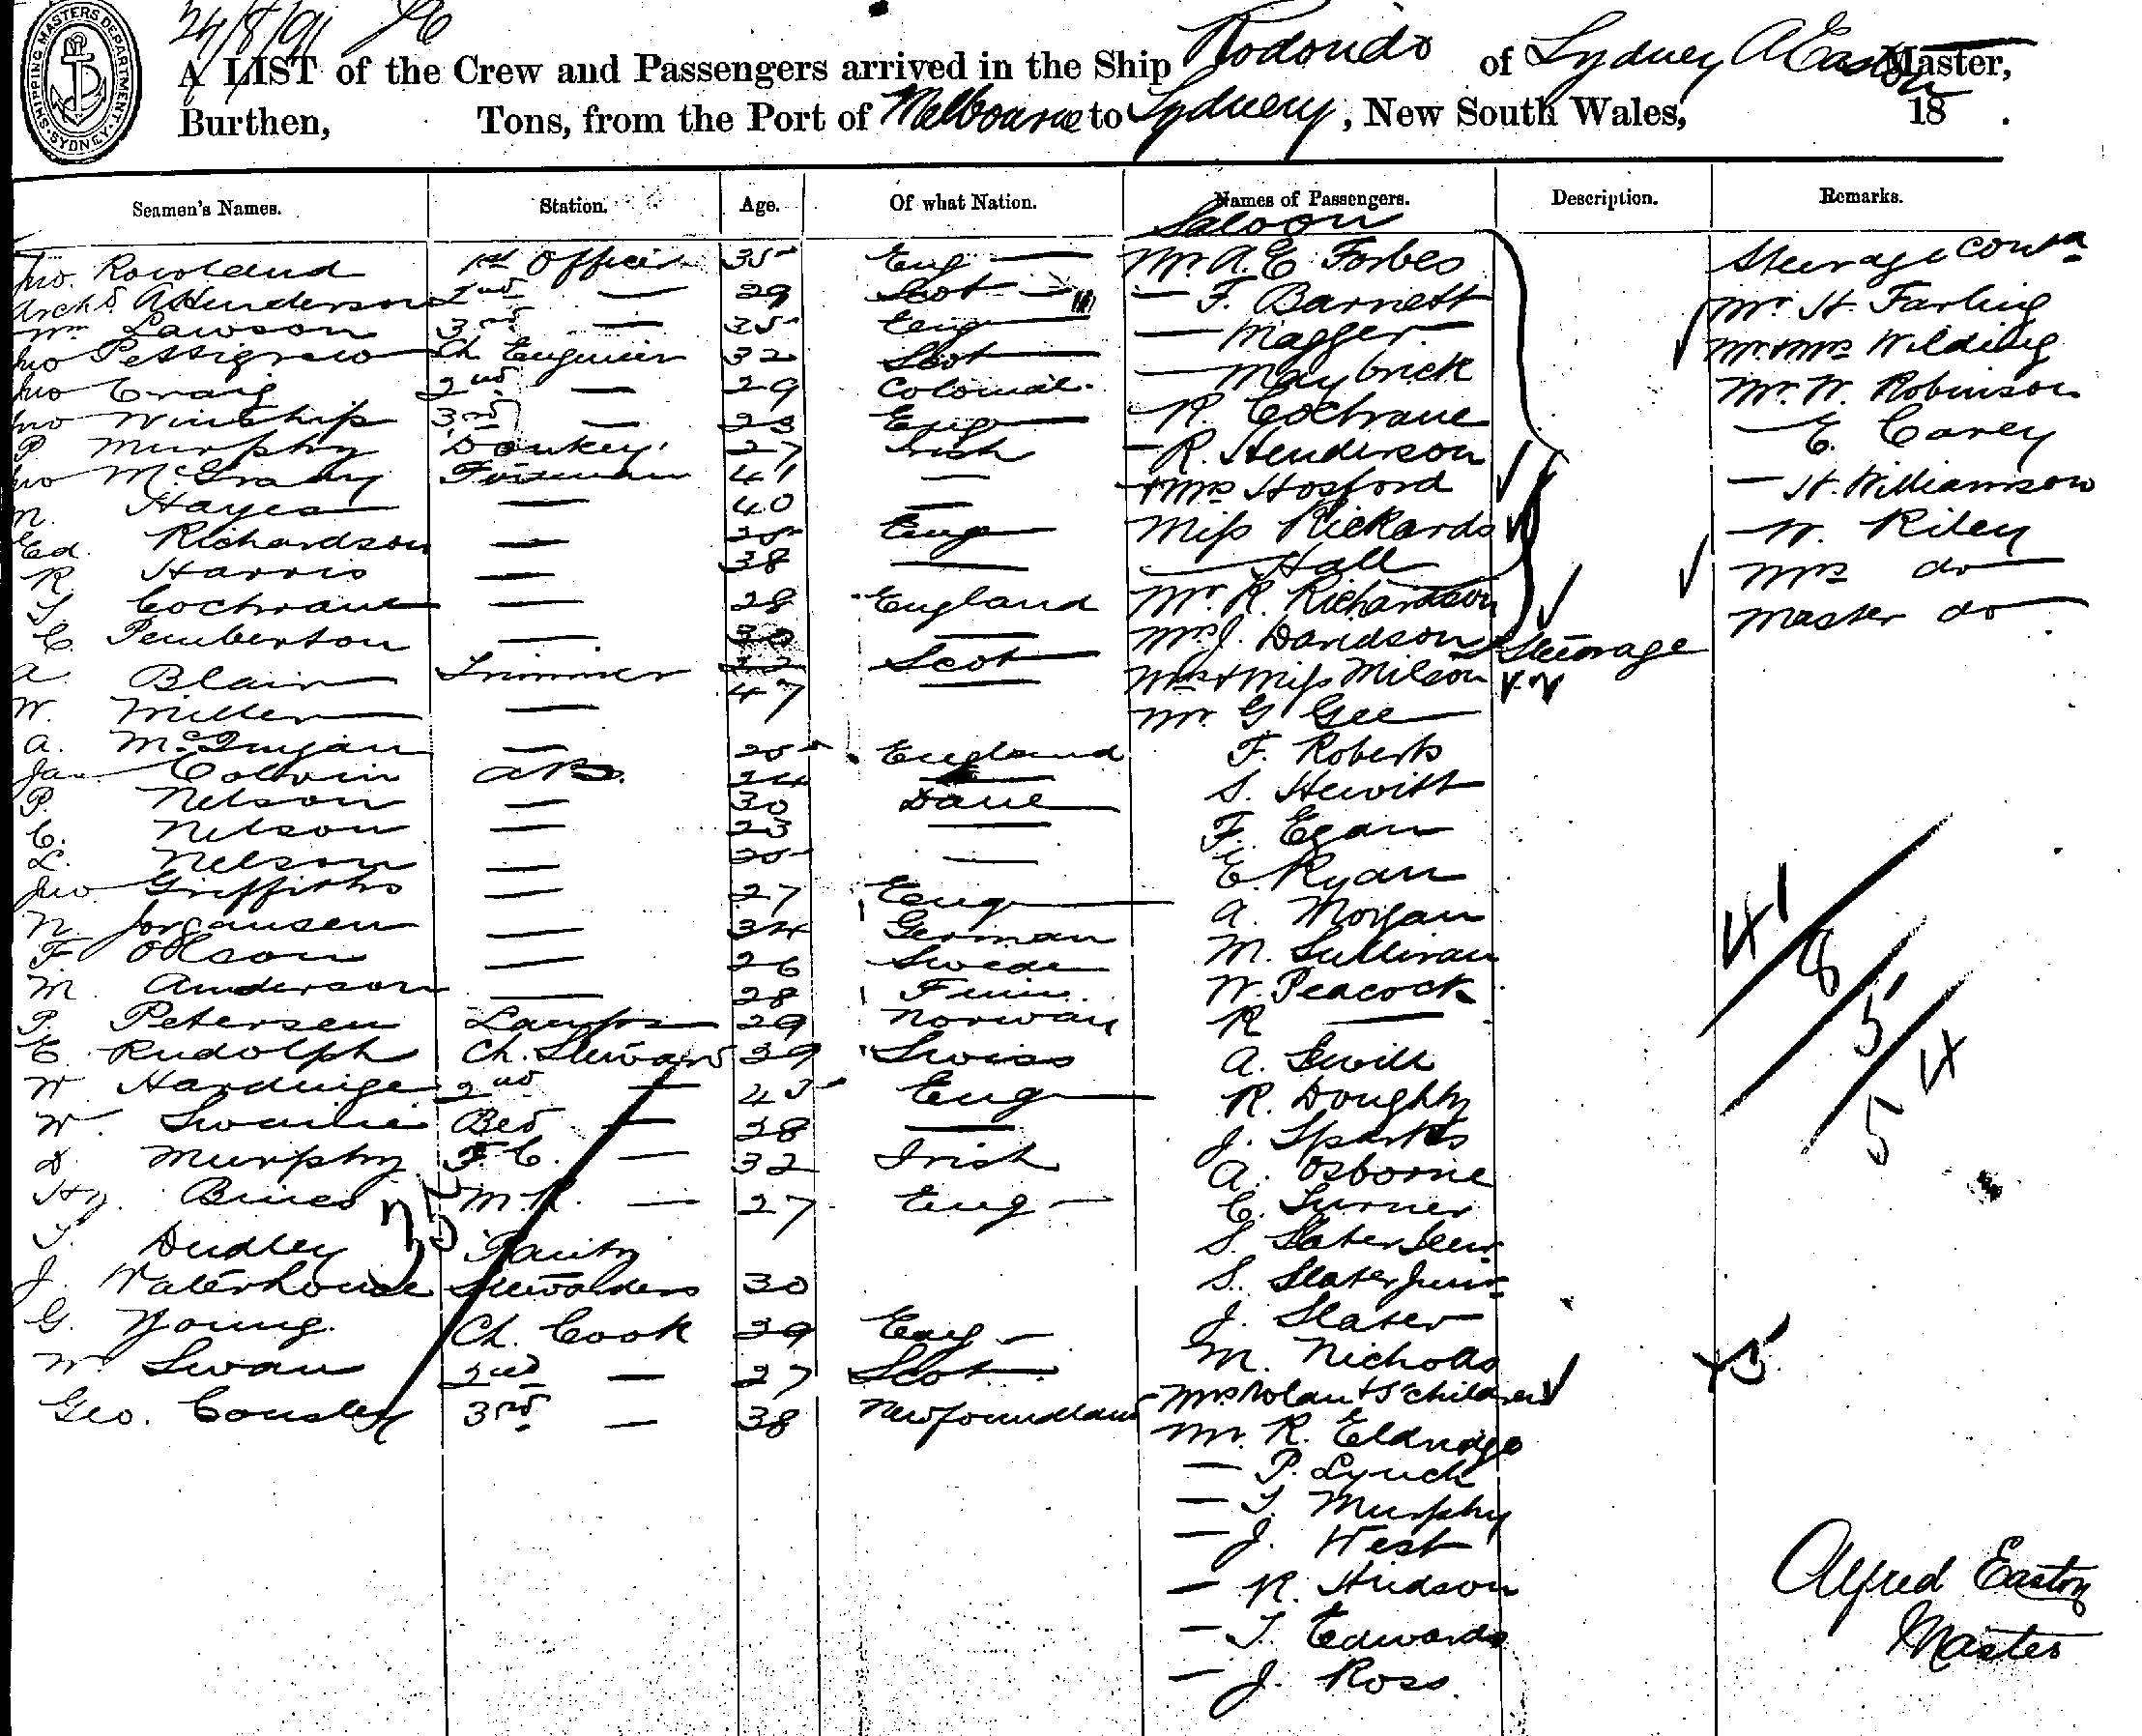 24/8/91
SHIPPING MASTERS DEPARTMENT SYDNEY
A LIST of the Crew and Passengers arrived in the Ship Rodondo of Sydney A Easton Master,
Burthen, Tons, from the Port of Melbourne to Sydney, New South Wales, 18 .
Seamen's Names. Station. Age. Of what Nation. Names of Passengers. Description. Remarks.
Saloon
Jno. Rowland 1st Officer 35 Eng — Mr. A. E. Forbes Steerage Contd
Archd. A Henderson 2nd — 29 Scot — — F. Barnett Mr. H. Farling
Wm Lawson 3rd — 35 Eng — — Magger Mr & Mrs Wilding
Jno Pettigrew Ch. Engineer 32 Scot — — Maybrick Mr. W. Robinson
Jno Craig 2nd — 29 Colonial — R. Cochrane — E. Carey
Jno Winship 3rd — 23 Eng — — R. Henderson — H. Williamson
P Murphy Donkey 27 Irish + Mrs Hosford — W. Riley
Jno McGrady Fireman 41 — Miss Rickards Mrs do
M. Hayes — 40 — — Hall Master do
Ed. Richardson — 28 Eng Mr. R. Richardson
R Harris — 38 — Mrs J. Davidson Steerage
T Cochrane — 28 England Mrs & Miss Milson
C. Pemberton — 30 — Mr. G Gee
A. Blair Trimmer 22 Scot F. Roberts
W. Miller — 47 — S. Hewitt
A. McGuigan — 25 England F. Egan
Jas Colvin AB. 24 — E. Ryan
P. Nelson — 30 Dane A. Morgan
C. Nelson — 23 — M. Sullivan
L. Nelson — 25 — W. Peacock
Jno Griffiths — 27 Eng R —
N. Jorgansen — 34 German A. Sewill
F Olson — 26 Swede R. Doughty
M. Anderson — 28 Finn J. Sparks
P. Petersen Lamps 29 Norway A. Osborne
E. Rudolph Ch. Steward 39 Swiss C. Turner
W Hardinge 2nd — 45 Eng S. Slater Senr
W. Swaine Bed — 28 — S. Slater Junr
D. Murphy F. C. — 32 Irish J. Slater
Hy. Bines M. R. — 27 Eng — M. Nicholls
T. Dudley Pantry Mrs Nolan & 5 children
J. Waterhouse Stewardess 30 Mr. R. Eldridge
G. Young Ch. Cook 39 Eng — — P. Lynch
W. Swan 2nd — 27 Scot — T. Murphy
Geo. Cousley 3rd — 38 Newfoundland — J. West
— R. Hudson
— T. Edwards
— J. Ross
35
41
8
5
5
4
5
Alfred Easton
Master